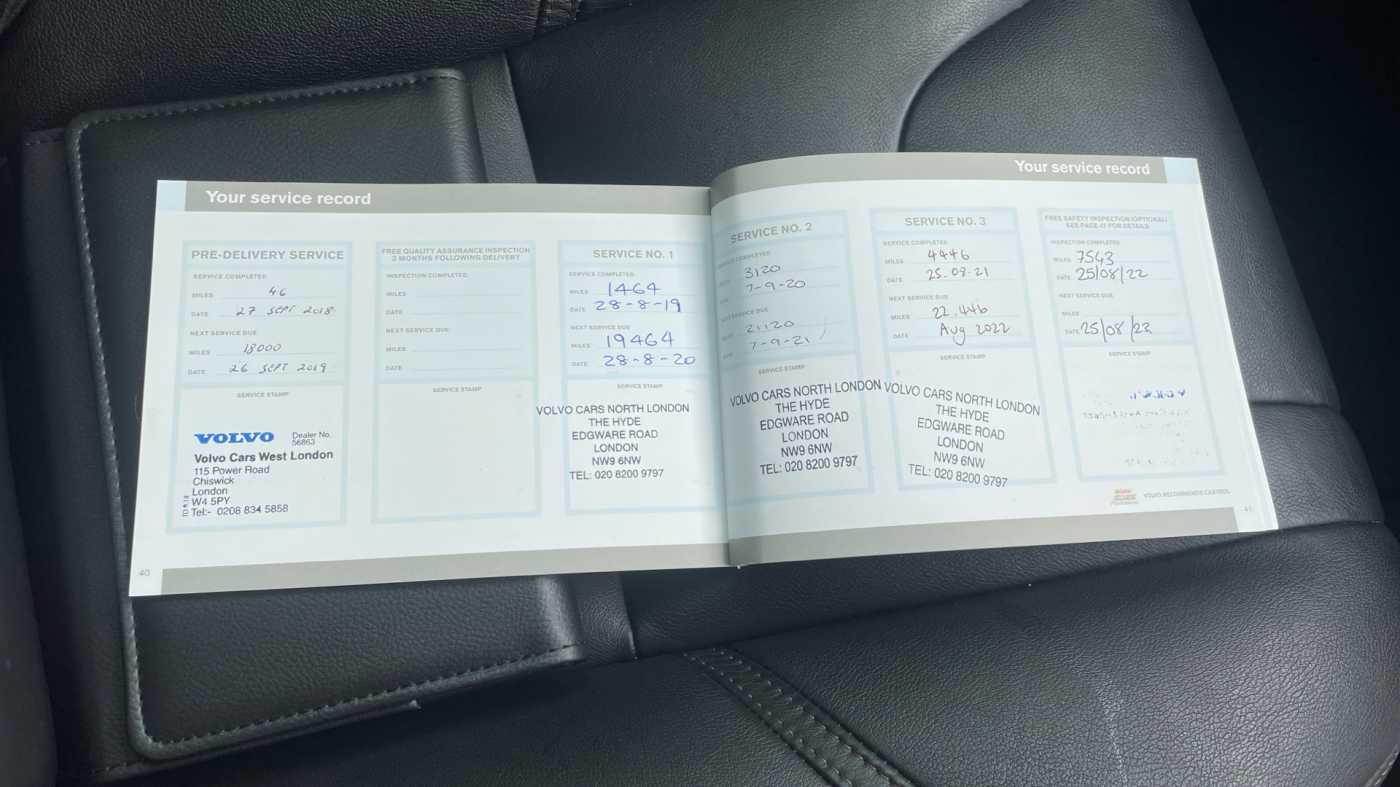 Your service record
PRE-DELIVERY SERVICE
SERVICE COMPLETED
MILES 46
DATE 27 SEPT 2018
NEXT SERVICE DUE
MILES 18000
DATE 26 SEPT 2019
SERVICE STAMP
VOLVO Dealer No.
56863
Volvo Cars West London
115 Power Road
Chiswick
London
W4 5PY
Tel:- 0208 834 5858
FREE QUALITY ASSURANCE INSPECTION
3 MONTHS FOLLOWING DELIVERY
INSPECTION COMPLETED
MILES
DATE
NEXT SERVICE DUE
MILES
DATE
SERVICE STAMP
SERVICE NO. 1
SERVICE COMPLETED
MILES 1464
DATE 28-8-19
NEXT SERVICE DUE
MILES 19464
DATE 28-8-20
SERVICE STAMP
VOLVO CARS NORTH LONDON
THE HYDE
EDGWARE ROAD
LONDON
NW9 6NW
TEL: 020 8200 9797
40
Your service record
SERVICE NO. 2
COMPLETED
3120
7-9-20
NEXT SERVICE DUE
21120
7-9-21
SERVICE STAMP
VOLVO CARS NORTH LONDON
THE HYDE
EDGWARE ROAD
LONDON
NW9 6NW
TEL: 020 8200 9797
SERVICE NO. 3
SERVICE COMPLETED
MILES 4446
DATE 25.08.21
NEXT SERVICE DUE
MILES 22,446
DATE Aug 2022
SERVICE STAMP
VOLVO CARS NORTH LONDON
THE HYDE
EDGWARE ROAD
LONDON
NW9 6NW
TEL: 020 8200 9797
FREE SAFETY INSPECTION (OPTIONAL)
SEE PAGE 41 FOR DETAILS
INSPECTION COMPLETED
MILES 7543
DATE 25/08/22
NEXT SERVICE DUE
MILES
DATE 25/08/23
SERVICE STAMP
VOLVO RECOMMENDS CASTROL
41